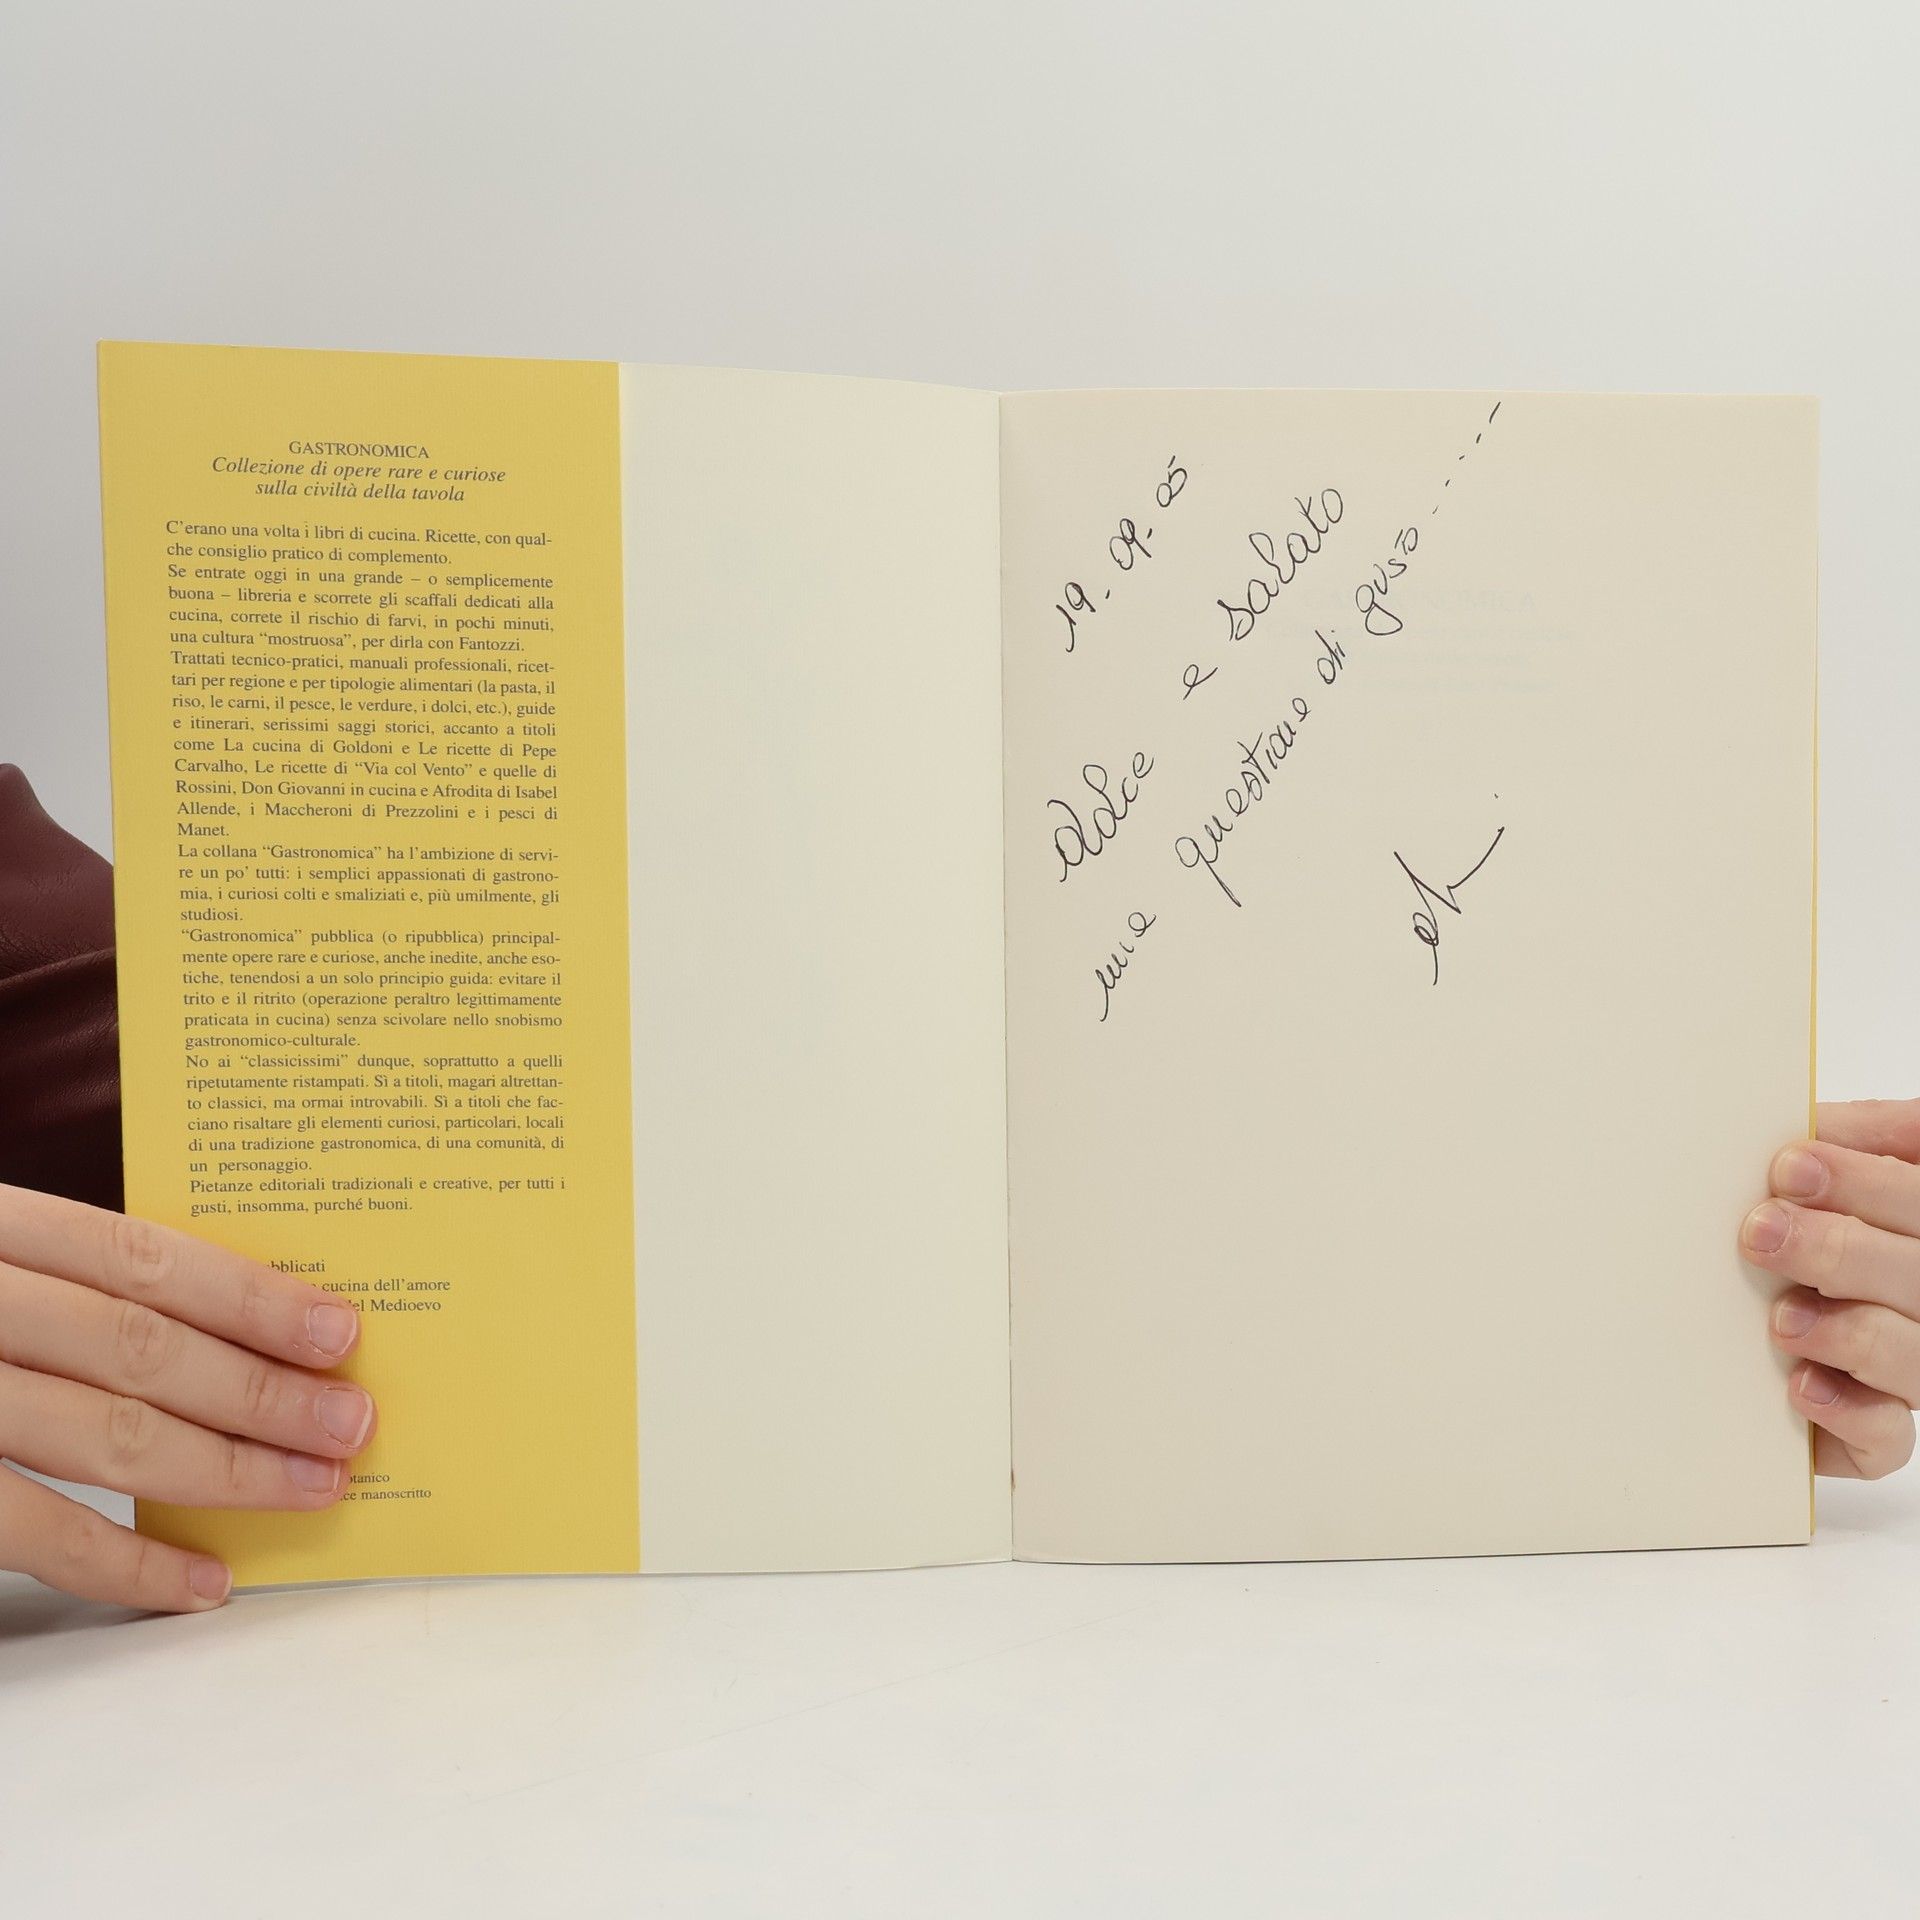 GASTRONOMICA
Collezione di opere rare e curiose
sulla civiltà della tavola
C'erano una volta i libri di cucina. Ricette, con qual-
che consiglio pratico di complemento.
Se entrate oggi in una grande – o semplicemente
buona – libreria e scorrete gli scaffali dedicati alla
cucina, correte il rischio di farvi, in pochi minuti,
una cultura “mostruosa”, per dirla con Fantozzi.
Trattati tecnico-pratici, manuali professionali, ricet-
tari per regione e per tipologie alimentari (la pasta, il
riso, le carni, il pesce, le verdure, i dolci, etc.), guide
e itinerari, serissimi saggi storici, accanto a titoli
come La cucina di Goldoni e Le ricette di Pepe
Carvalho, Le ricette di “Via col Vento” e quelle di
Rossini, Don Giovanni in cucina e Afrodita di Isabel
Allende, i Maccheroni di Prezzolini e i pesci di
Manet.
La collana “Gastronomica” ha l'ambizione di servi-
re un po' tutti: i semplici appassionati di gastrono-
mia, i curiosi colti e smaliziati e, più umilmente, gli
studiosi.
“Gastronomica” pubblica (o ripubblica) principal-
mente opere rare e curiose, anche inedite, anche eso-
tiche, tenendosi a un solo principio guida: evitare il
trito e il ritrito (operazione peraltro legittimamente
praticata in cucina) senza scivolare nello snobismo
gastronomico-culturale.
No ai “classicissimi” dunque, soprattutto a quelli
ripetutamente ristampati. Sì a titoli, magari altrettan-
to classici, ma ormai introvabili. Sì a titoli che fac-
ciano risaltare gli elementi curiosi, particolari, locali
di una tradizione gastronomica, di una comunità, di
un personaggio.
Pietanze editoriali tradizionali e creative, per tutti i
gusti, insomma, purché buoni.
bblicati
cucina dell'amore
del Medioevo
otanico
ce manoscritto
19. 09. 05
dolce e salato
una questione di gusto ......